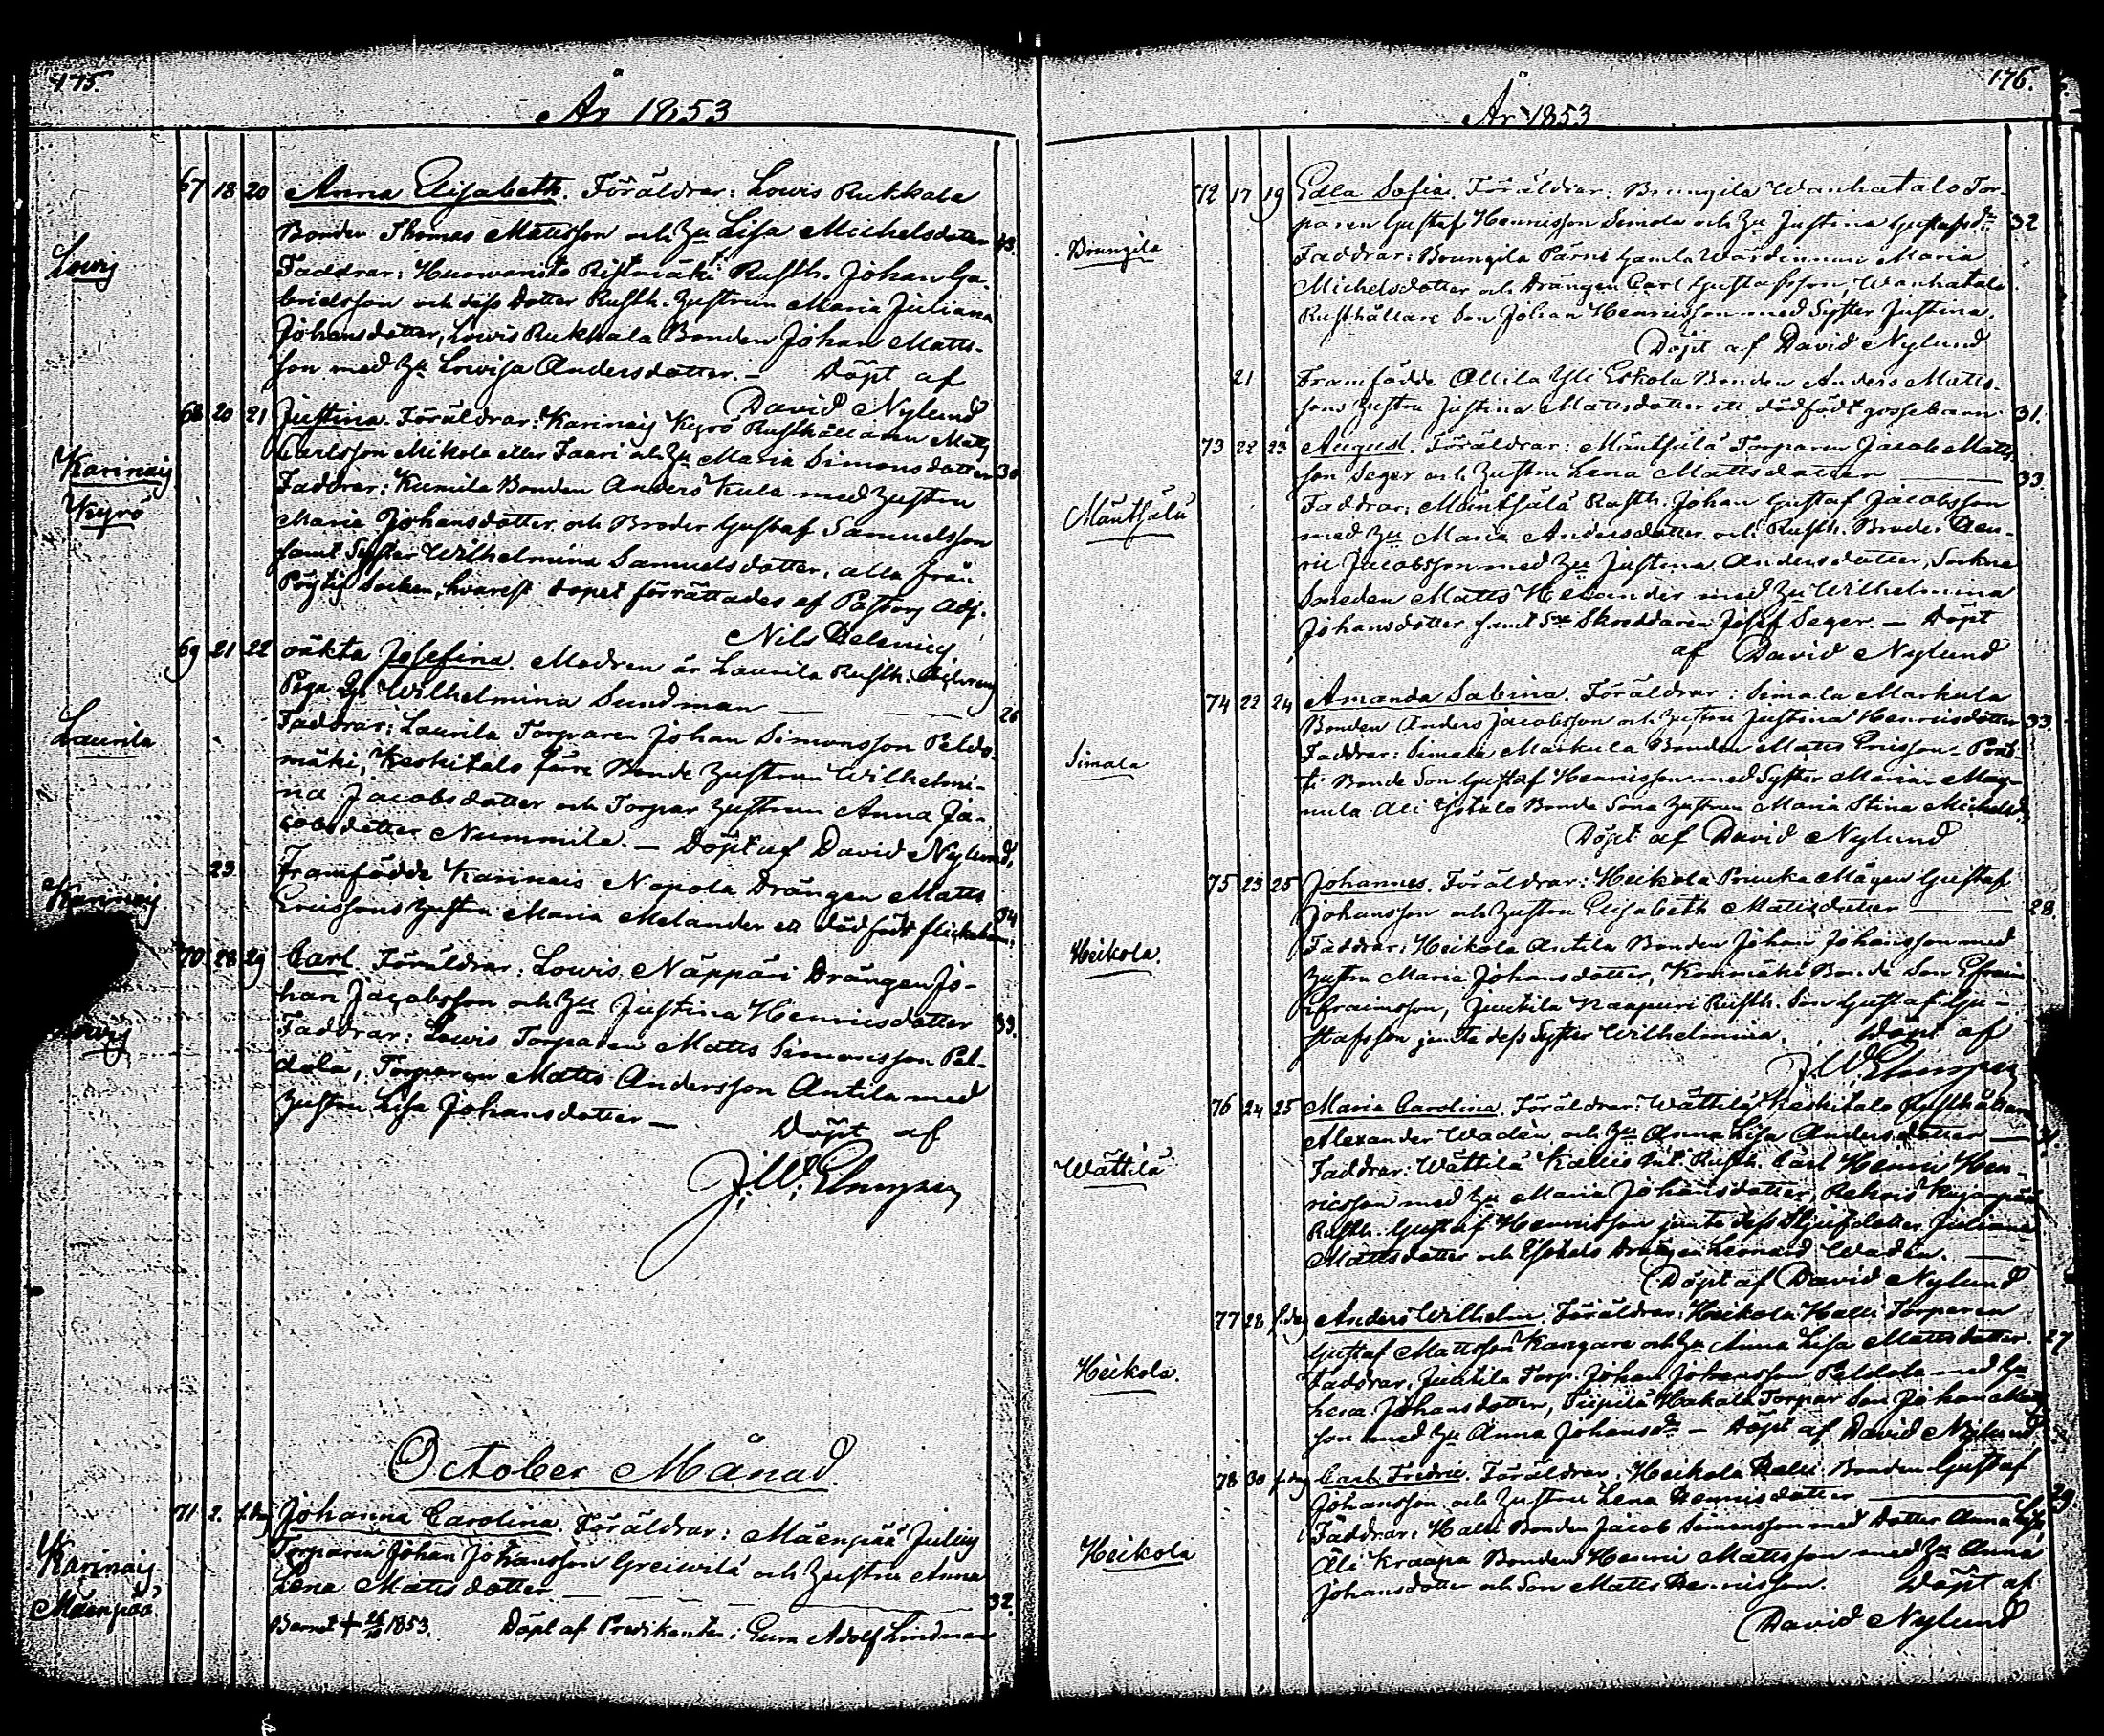 175.
År 1853
67 18 20 Anna Elisabeth. Föräldrar: Lowis Rukkala
Bonden Thomas Mattsson och Hu Lisa Michelsdotter 43.
Lowis
Faddrar: Ristimäki Rusth. Johan Ga-
brielsson och dess dotter Rusth. Hustrun Maria Juliana
Johansdotter, Lowis Rukkala Bonden Johan Matts-
son med Hu Lowisa Andersdotter. — Döpt af
David Nylund
68 20 21 Justina. Föräldrar: Karinais Kyrö Rusthållaren Matts
Carlsson Mikola eller Jaari och Hu Maria Simonsdotter 30
Karinais
Kyrö
Faddrar: Kumila Bonden Anders Kula med Hustru
Maria Johansdotter och Broder Gustaf Samuelsson
samt Syster Wilhelmina Samuelsdotter, alla från
Pöytis Socken, hvarest dopet förrättades af Pastors Adj.
Nils Helenius
69 21 22 oäkta Josefina. Modren är Laurila Rusth.
Piga Wilhelmina Sundman — — 26
Laurila
Faddrar: Laurila Torparen Johan Simonsson Peldo-
mäki, Keskitalo förre Bonde Hustrun Wilhelmi-
na Jacobsdotter och Torpar Hustrun Anna Ja-
cobsdotter Nummila. — Döpt af David Nylund.
23 Framfödde Karinais Nopola Drängen Matts
Karinais
Ericssons Hustru Maria Melander ett dödfödt flickebarn. 34
70 28 29 Carl. Föräldrar: Lowis Näppäri Drängen Jo-
han Jacobsson och Hu Justina Henricsdotter 33.
Lowis
Faddrar: Lowis Torparen Matts Simonsson Pel-
dola, Torparen Matts Andersson Antila med
Hustru Lisa Johansdotter — Döpt af
J. W. Elmgren
October Månad.
71 2. f.dag Johanna Carolina. Föräldrar: Mäenpää Julius
Karinais
Torparen Johan Johansson Greiwilä och Hustru Anna
Lena Mattsdotter — — — 32.
Mäenpää
Barnet + 26/10 1853. Döpt af Predikanten i Eura Adolf Lindman
176.
År 1853
72 17 19 Edla Sofia. Föräldrar: Brungila Wanhatalo Tor-
paren Gustaf Henricsson Simola och Hu Justina Gustafsdr 32
Brungila
Faddrar: Brungila Pärni Gamla Wärdinnan Maria
Michelsdotter och Drängen Carl Gustafsson, Wanhatalo
Rusthållare Son Johan Henricsson med Syster Justina.
Döpt af David Nylund
21 Framfödde Ollila Yli Eskola Bonden Anders Matts-
sons Hustru Justina Mattsdotter ett dödfödt gossebarn. 31.
73 22 23 August. Föräldrar: Mäntsälä Torparen Jacob Matts-
son Seger och Hustru Lena Mattsdotter — 33.
Mäntsälä
Faddrar: Mäntsälä Rusth. Johan Gustaf Jacobsson
med Hu Maria Andersdotter och Rusth. Broder Hen-
ric Jacobsson med Hu Justina Andersdotter, Sockne
Smeden Matts Helander med Hu Wilhelmina
Johansdotter samt Skreddaren Josef Seger. — Döpt
af David Nylund
74 22 24 Amanda Sabina. Föräldrar: Simala Markula
Bonden Anders Jacobsson och Hustru Justina Henricsdotter 33.
Simala
Faddrar: Simala Markula Bonden Matts Ericsson,
Bonde Son Gustaf Henricsson med Syster Maria,
Ali Yötalo Bonde Sons Hustrun Maria Stina Michelsdr.
Döpt af David Nylund
75 23 25 Johannes. Föräldrar: Heikola Prunka Mågen Gustaf
Johansson och Hustru Elisabeth Mattsdotter — 28.
Heikola.
Faddrar: Heikola Antila Bonden Johan Johansson med
Hustru Maria Johansdotter, Konnmäki Bonde Son Efraim
Efraimsson, Juutila Naapuri Rusth. Son Gustaf Gu-
stafsson jemte dess Syster Wilhelmina. Döpt af
J. W. Elmgren
76 24 25 Maria Carolina. Föräldrar: Wättilä Keskitalo Rusthållaren
Alexander Wadén och Hu Anna Lisa Andersdotter — 31.
Wättilä
Faddrar: Wättilä Rusth. Carl Henric Hen-
ricsson med Hu Maria Johansdotter,
Rusth. Gustaf Henricsson jemte dess Stjufdotter Juliana
Mattsdotter och Drängen Leonard Wadén. —
Döpt af David Nylund
77 28 f.dag Anders Wilhelm. Föräldrar: Heikola Halli Torparen
Gustaf Mattsson Kangare och Hu Anna Lisa Mattsdotter. 27
Heikola.
Faddrar: Juutila Torp. Johan Johansson Peldola med Hu
Johansdotter, Hakala Torpar Son Johan Matts-
son med Hu Anna Johansdr — Döpt af David Nylund
78 30 f.dag Carl Fredric. Föräldrar: Heikola Halli Bonden Gustaf
Johansson och Hustru Lena Henricsdotter — 29.
Heikola
Faddrar: Halli Bonden Jacob Simonsson med Dotter Anna Lisa,
Ali Kraapa Bonden Henric Mattsson med Hu Anna
Johansdotter och Son Matts Henricsson. Döpt af
David Nylund